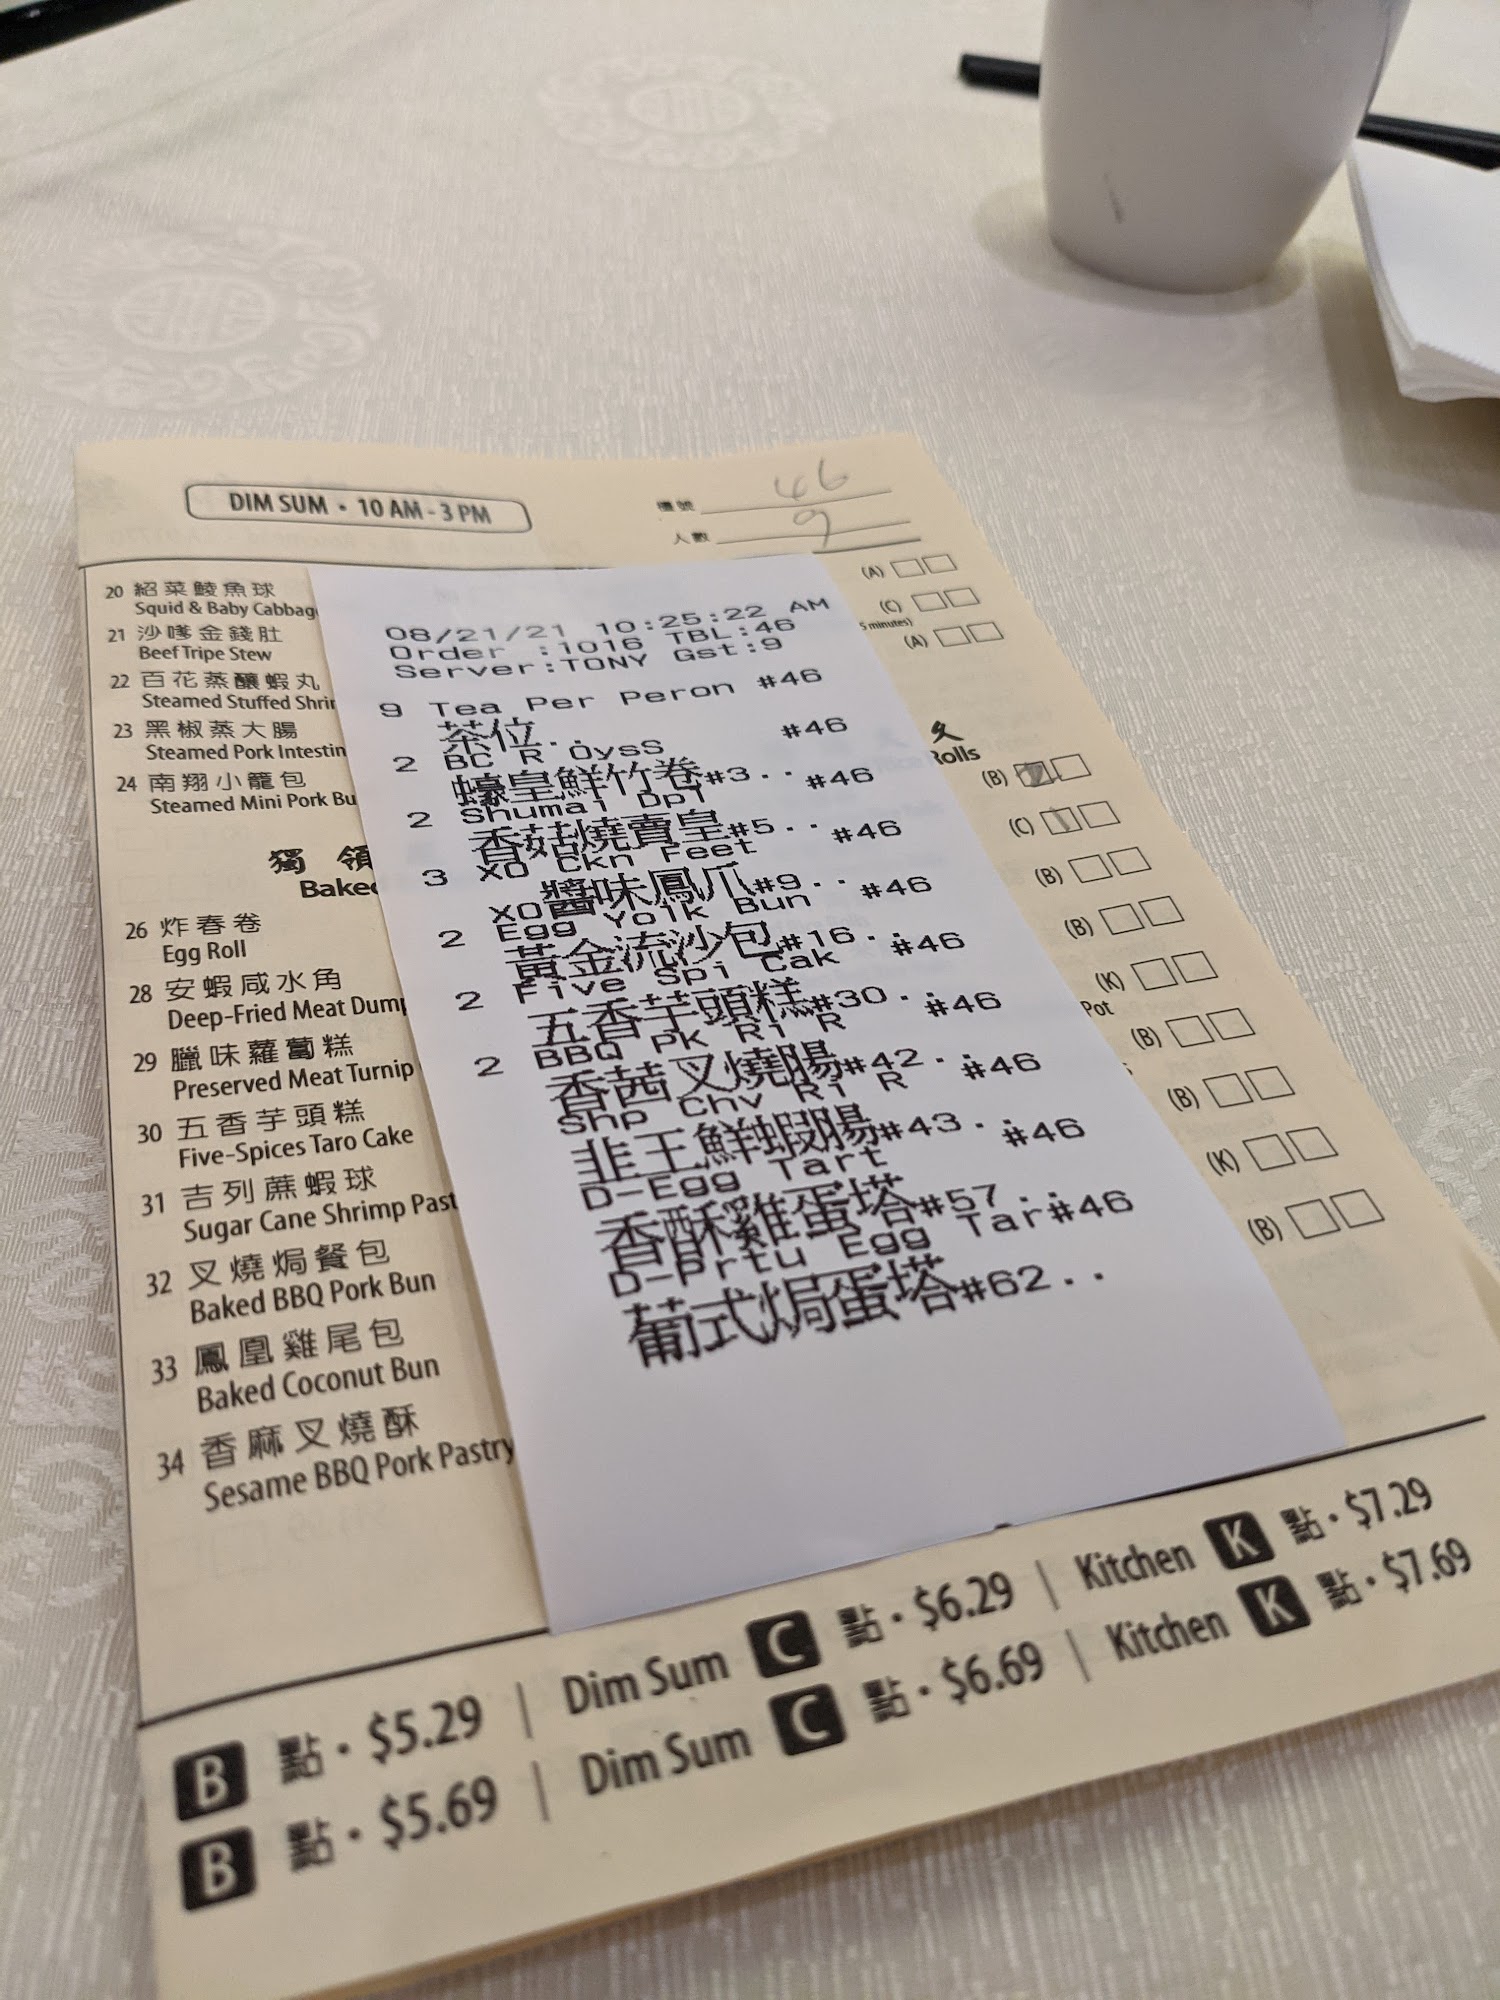 DIM SUM • 10 AM - 3 PM
檯號 46
人數 9
20 紹菜鯪魚球
Squid & Baby Cabbag
21 沙嗲金錢肚
Beef Tripe Stew
22 百花蒸釀蝦丸
Steamed Stuffed Shri
23 黑椒蒸大腸
Steamed Pork Intestin
24 南翔小籠包
Steamed Mini Pork Bu
獨 領
Baked
26 炸春卷
Egg Roll
28 安蝦咸水角
Deep-Fried Meat Dump
29 臘味蘿蔔糕
Preserved Meat Turnip
30 五香芋頭糕
Five-Spices Taro Cake
31 吉列蔗蝦球
Sugar Cane Shrimp Past
32 叉燒焗餐包
Baked BBQ Pork Bun
33 鳳凰雞尾包
Baked Coconut Bun
34 香麻叉燒酥
Sesame BBQ Pork Pastry
08/21/21 10:25:22 AM
Order :1016 TBL:46
Server:TONY Gst:9
9 Tea Per Peron #46
茶位..
2 BC R OysS #46
蠔皇鮮竹卷#3..
2 Shumai Dpl #46
香菇燒賣皇#5..
3 XO Ckn Feet #46
XO醬味鳳爪#9..
2 Egg Yolk Bun #46
黃金流沙包#16..
2 Five Spi Cak #46
五香芋頭糕#30..
2 BBQ PK Ri R #46
香茜叉燒腸#42..
Shp Chv Ri R #46
韭王鮮蝦腸#43..
D-Egg Tart #46
香酥雞蛋塔#57..
D-Prtu Egg Tar#46
葡式焗蛋塔#62..
(A)
(C)
5 minutes)
(A)
久
Rolls
(B)
(C)
(B)
(B)
(K)
Pot
(B)
(B)
(K)
(B)
B 點 • $5.29 | Dim Sum C 點 • $6.29 | Kitchen K 點 • $7.29
B 點 • $5.69 | Dim Sum C 點 • $6.69 | Kitchen K 點 • $7.69